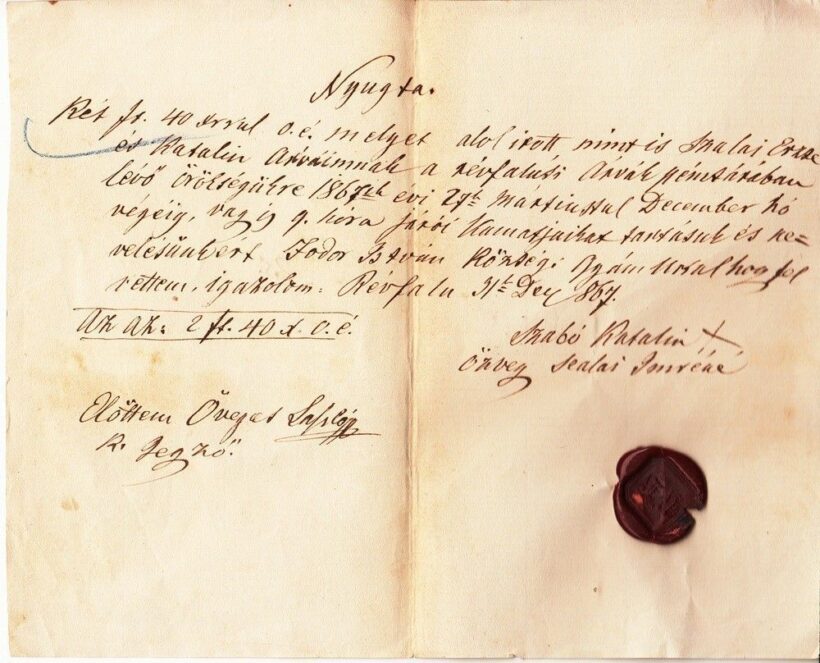 Nyugta.
Két ft. 40 xrrul o.é. melyet alolirott mint is Szalai Ersze
és Katalin Árváimnak a révfalusi Árvák pénztárában
lévő örökségükre 1867ik évi 27k Mártiustul December hó
végéig, vagyis 9. hóra járói Kamatjaikat tartásuk és ne=
velésükért Fodor István Községi Gyám Urtul hogy fel
vettem, igazolom. Révfalu 31k Dec 1867.
Az az: 2 ft. 40 x. o.é.
Szabó Katalin X
özveg Szalai Imréné
Előttem Öveges
K. Jegző.